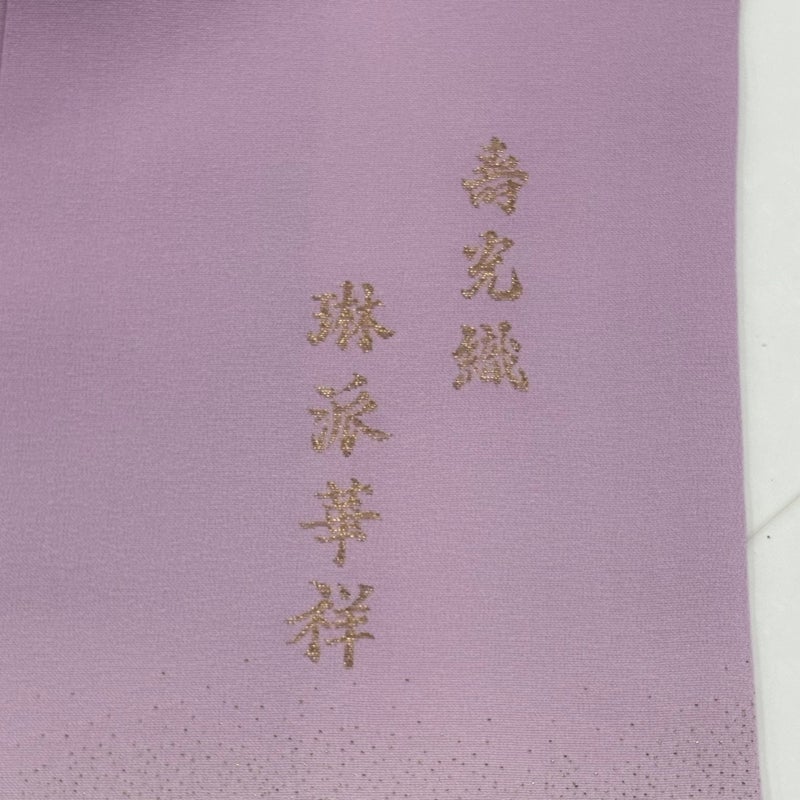 壽光織
琳派華祥